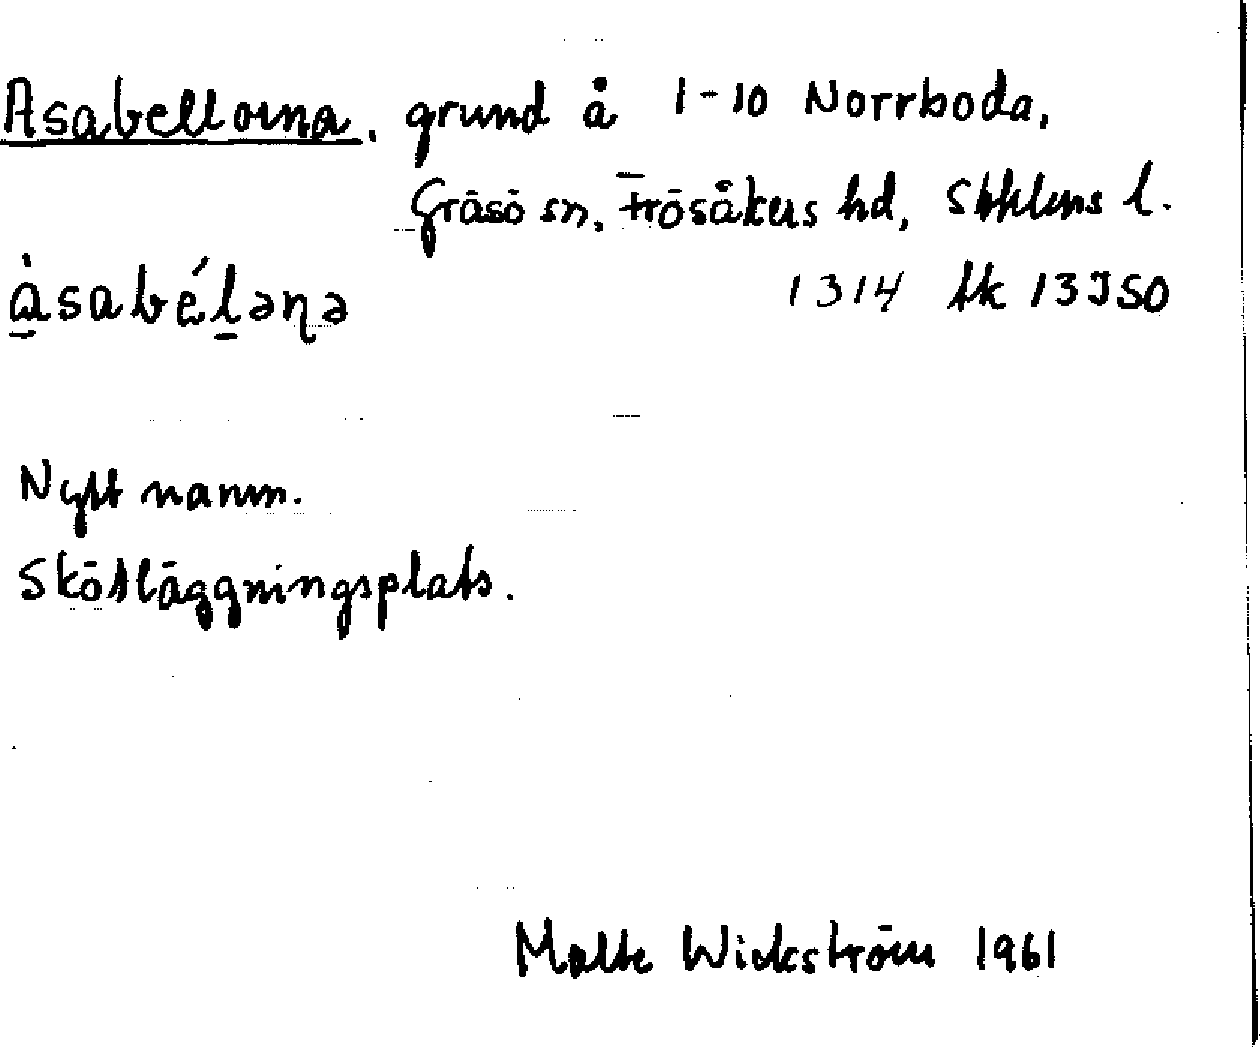 Asabellorna, grund å 1-10 Norrboda,
Gräsö sn, Frösåkers hd, Sthlms l.
àsabéləṇə 1314 tk 13I S0
Nytt namn.
Skötläggningsplats.
Malte Wickström 1961